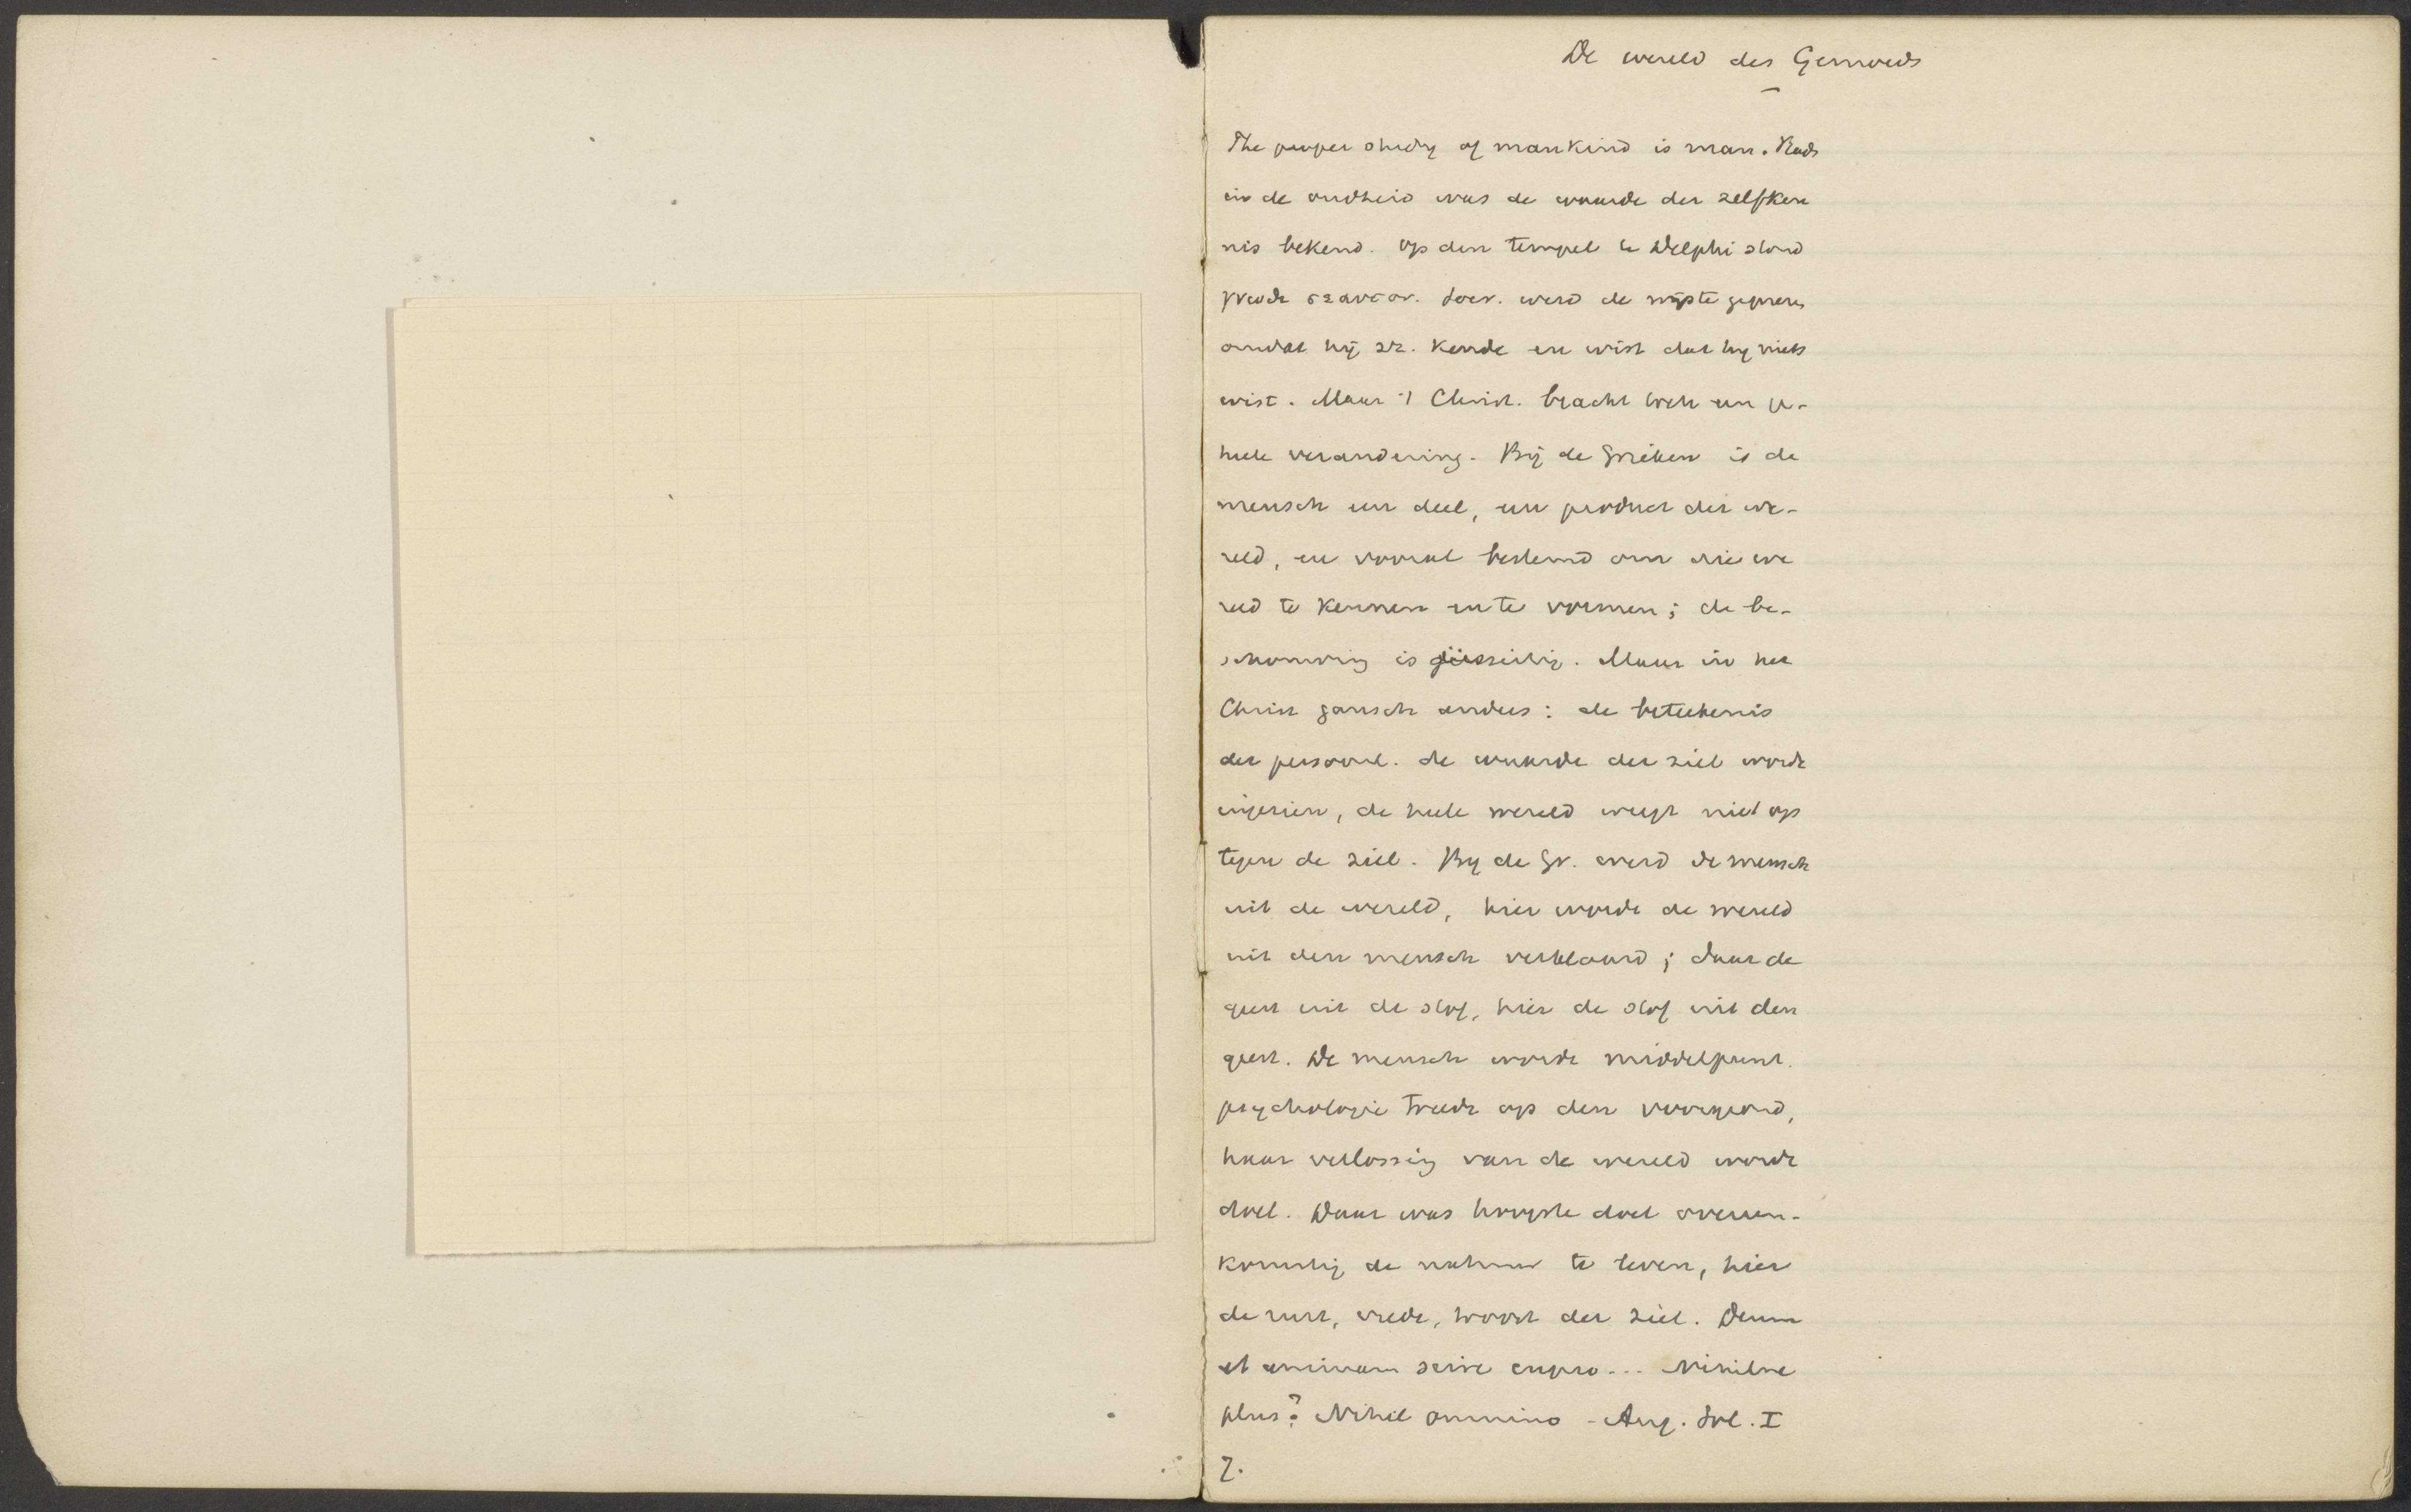 De wereld des Gemoeds
The proper study of mankind is man. Reeds
in de oudheid was de waarde der zelfken
nis bekend. Op den tempel te Delphi stond
γνωθι σεαυτον. Socr. werd de wijste geprezen
omdat hij zz. kende en wist dat hij niets
wist. Maar 't Christ. bracht toch een ge-
heele verandering. Bij de Grieken is de
mensch een deel, een product der we-
reld, en vooral bestemd om die we
reld te kennen en te vormen; de be-
schouwing is . Maar in het
Christ gansch anders: de beteekenis
der persoonl. de waarde der ziel wordt
ingezien, de heele wereld weegt niet op
tegen de ziel. Bij de Gr. werd de mensch
uit de wereld, hier wordt de wereld
uit den mensch verklaard; daar de
geest uit de stof, hier de stof uit den
geest. De mensch wordt middelpunt.
psychologie treedt op den voorgrond,
haar verlossing van de wereld wordt
doel. Daar was hoogste doel overeen-
komstig de natuur te leven, hier
de rust, vrede, troost der ziel. Deum
et animam scire cupio... Nihilne
plus? Nihil omnino - Aug. Sol. I
7.